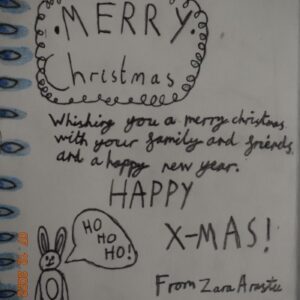 MERRY
Christmas
Whishing you a merry christmas
with your family and friends,
and a happy new year.
HAPPY
X-MAS!
HO
HO
HO!
From Zara Arastu